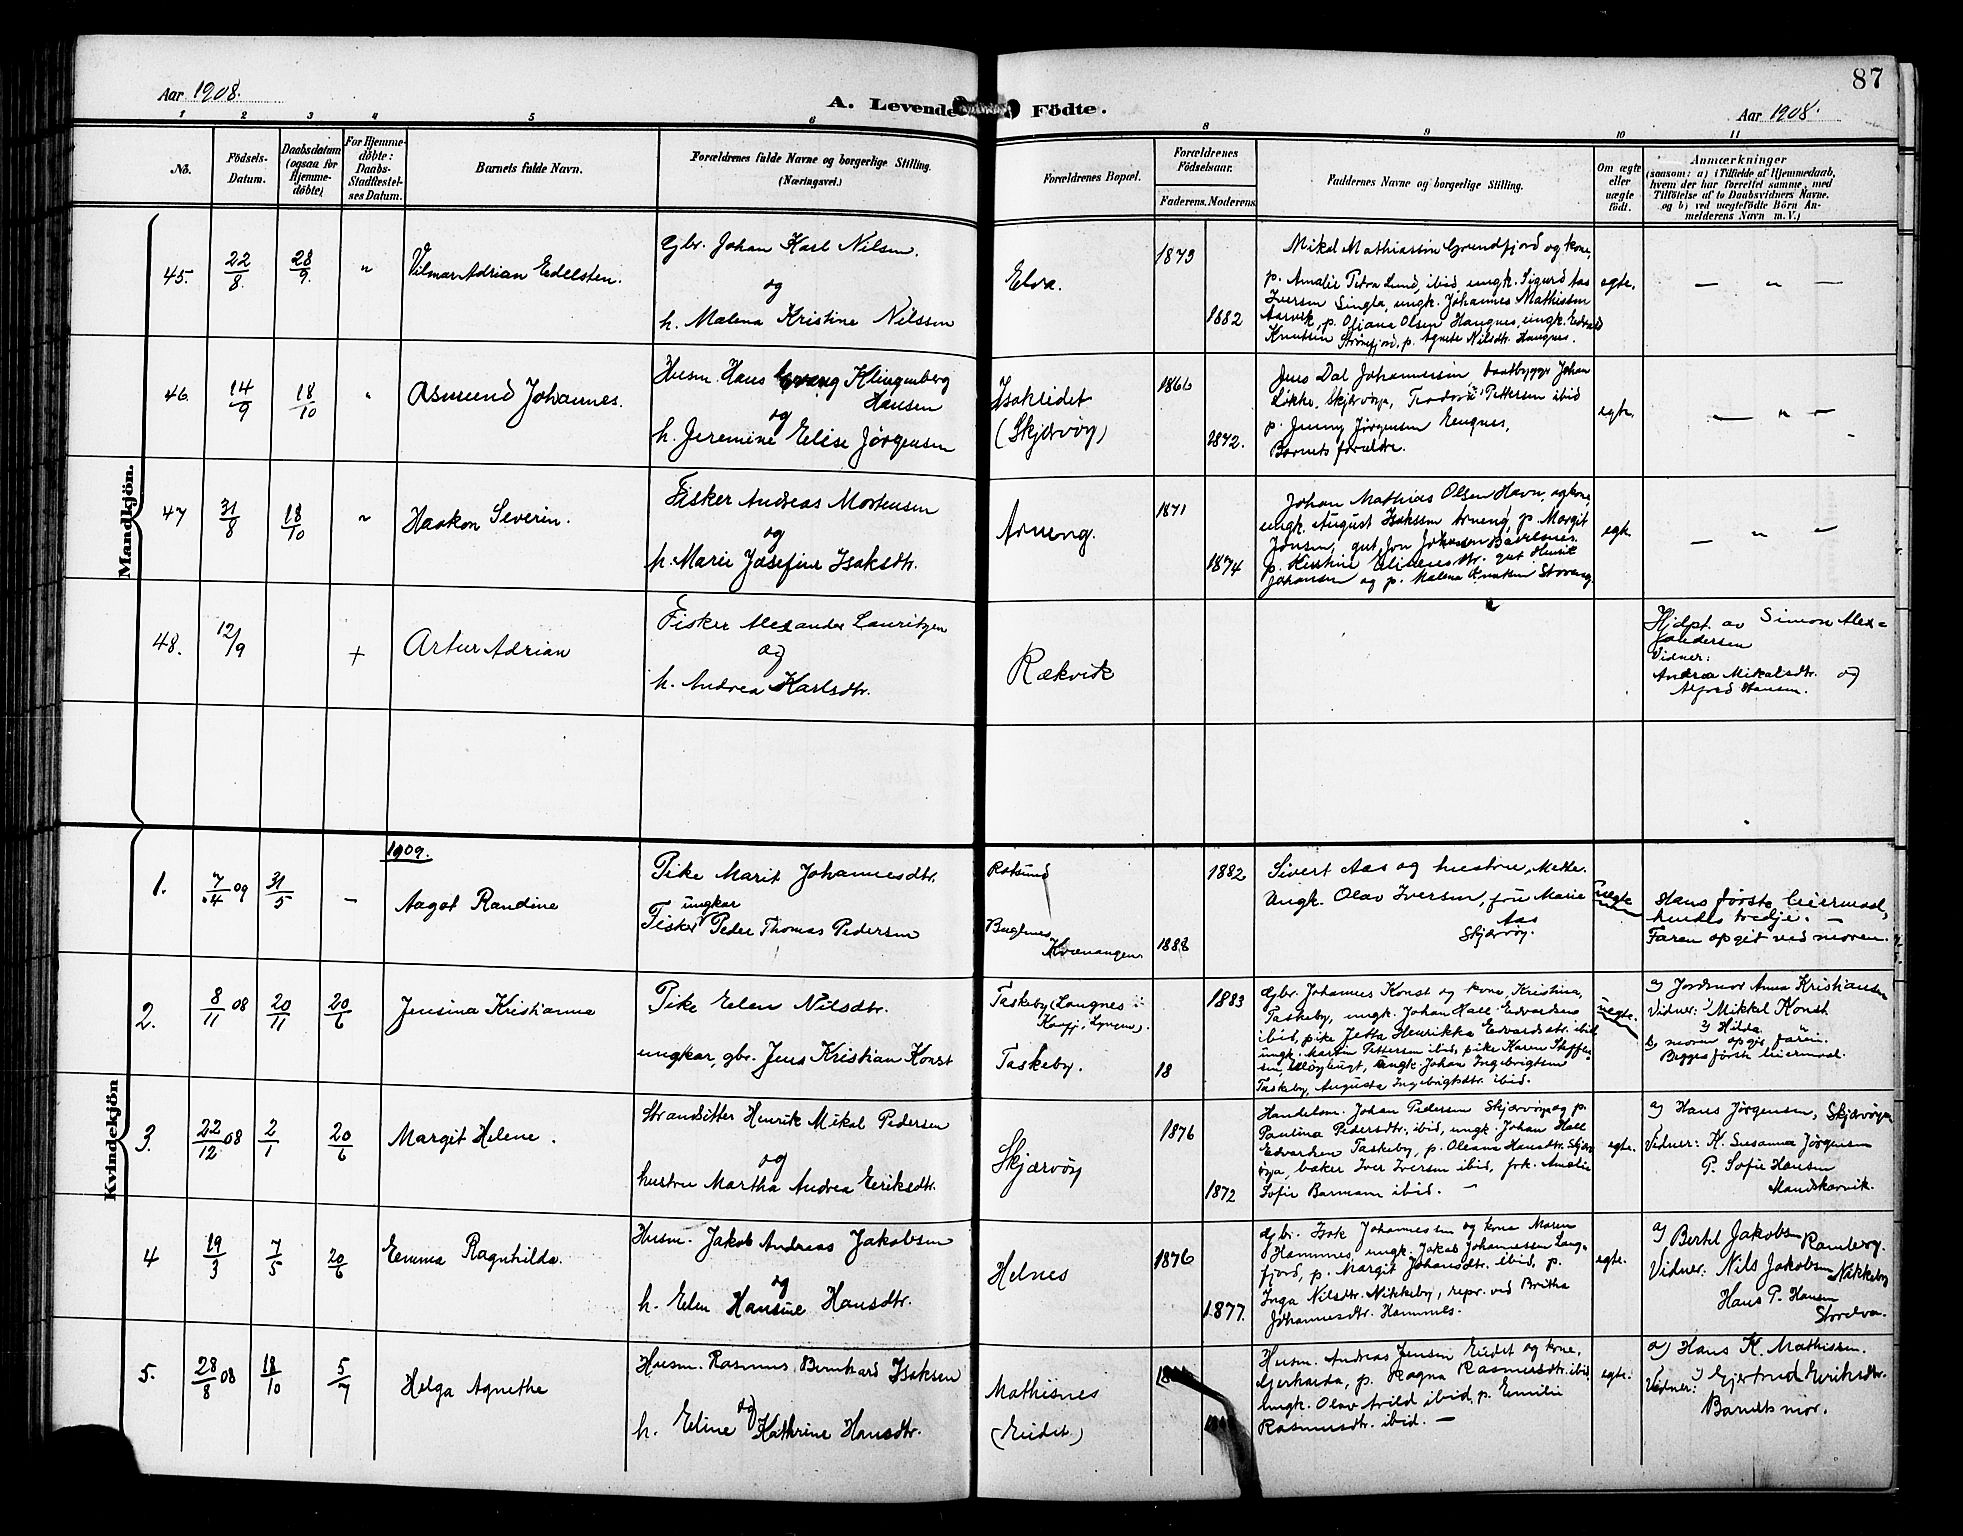 Aar 1908.
A. Levende Födte.
87
Aar 1908.
1 2 3 4 5 6 8 9 10 11
No.
Födsels-Datum.
Daabsdatum (ogsaa for Hjemme-döbte)
For Hjemme-döbte: Daabs-Stadfestel-ses Datum.
Barnets fulde Navn.
Forældrenes fulde Navne og borgerlige Stilling. (Næringsvei.)
Forældrenes Bopæl.
Forældrenes Födselsaar.
Faderens. Moderens.
Faddernes Navne og borgerlige Stilling.
Om ægte eller uægte födt.
Anmærkninger
(saasom: a) i Tilfælde af Hjemmedaab, hvem der har forrettet samme, med Tilföielse af to Daabsvidners Navne. og b) ved uægtefödte Börn An-melderens Navn m. V.)
Mandkjön.
45. 22/8. 28/9. " Vilmar Adrian Edelsten.
Gbr. Johan Karl Nilsen.
og
h. Malena Kristine Nilssen
Elva.
1873
1882
Mikal Mathiassen Grundfjord og kone,
p. Amalie Petra Lund, ibid, ungk. Sigurd Aas
Iversen Singla, ungk. Johannes Mathissen
Aarvik, p. Oliana Olsen Haugnes, ungk. Edvald
Knutsen Strømfjord, p. Agnete Nilsdtr. Haugnes.
egte.
— " —
46 14/9 18/10 " Asmund Johannes.
Husm. Hans Klingenberg
Hansen
og
h. Jeremine Elise Jørgensen
Isakeidet
(Skjærvøy)
1866
1872.
Jens Dal Johannessen baatbygger Johan
Likke, Skjærvøya, Teodora Pettersen ibid
p. Jenny Jørgensen Engnes,
Barnets forældre.
egte.
— " —
47 31/8 18/10 " Haakon Severin.
Fisker Andreas Mortensen
og
h. Marie Josefine Isaksdtr.
Arneng.
1871
1874
Johan Mathias Olsen Havn, og kone,
ungk. August Isakssen Arneng, p. Margit
Jonsen, gut Jon Johansen
p. Kirstine Elidensdtr. gut Henrik
Johansen og p. Malena Knutsen Storeng.
egte.
— " —
48. 12/9 + Artur Adrian
Fisker Alexander Lauritzen
og
h. Andrea Karlsdtr.
Rækvik
Hjdpt. av Simon Alex=
andersen
Vidner:
Andrea Mikalsdtr. og
Alfred Hansen.
Kvindekjön
1909.
1. 7/4 09 31/5 — Aagot Randine
Pike Marit Johannesdtr.
ungkar
Fisker Peder Thomas Pedersen
Rotsund
Kvænangen
1882
1888
Sivert Aas og hustru Mette.
Ungk. Olav Iversen, frø Marie
Aas
Skjærvøy.
uegte
Hans første leiermaal,
hendes tredje. —
Faren opgit ved moren.
2. 8/11 08 20/11 20/6 Jensina Kristianna
Pike Elen Nilsdtr.
ungkar, gbr. Jens Kristian Konst
Taskeby (Langnes i
Kaafj. Lyngen).
Taskeby.
1883
18
Gbr. Johannes Konst og kone, Kristina,
Taskeby, ungk. Johan Hall Edvardsen
ibid, pike Jetta Henrikka Edvardsdtr. ibid
ungk. Martin Pettersen ibid, pike Karen Steffen-
sen, ungk. Johan Ingebrigtsen
Taskeby, Augusta Ingebrigtsdtr. ibid.
uegte.
a) Jordmor Anna Kristiansen
Vidner: 1) Mikkel Konst
2) Hilda "
b) moren opgir faren.
Begges første leiermaal.
3. 22/12 08 2/1 20/6 Margit Helene.
Strandsitter Henrik Mikal Pedersen
og
hustru Martha Andrea Eriksdtr.
Skjærvøy
1876
1872
Handelsm. Johan Pedersen Skjærvøya og p.
Paulina Pedersdtr. ibid, ungk. Johan Hall
Edvardsen Taskeby, p. Oleana Hansdtr. Skjær-
vøya, baker Iver Iversen ibid, frk. Amalie
Sofie Barmann ibid. —
egte.
a) Hans Jørgensen, Skjærvøya
Vidner: K. Susanna Jørgensen
P. Sofie Hansen
Maurskarvik.
4 19/3 7/5 20/6 Emma Ragnhilda.
Husm. Jakob Andreas Jakobsen
og
h. Elen Hansine Hansdtr.
Helnes
1876
1877.
Gbr. Isak Johannessen og kone Maren
Hamnes, ungk. Jakob Johannessen Lang-
fjord, p. Margit Johansdtr. ibid, p.
Inga Nilsdtr. Nikkeby, repr. ved Britha
Johannesdtr. Hamnes.
egte.
a) Bertel Jakobsen Ramberg.
Vidner: Nils Jakobsen Nikkeby
Hans P. Hansen
Storelva.
5. 28/8 08 18/10 5/7 Helga Agnethe
Husm. Rasmus Bernhard Isaksen
og
h. Eline Kathrine Hansdtr.
Mathisnes
(Eidet)
Husm. Andreas Jensen Eidet og kone,
Gjerharda, p. Ragna Rasmusdtr. ibid,
ungk. Olav Arild ibid, p. Emilie
Rasmusdtr. ibid. —
egte.
a) Hans K. Mathissen.
Vidner: 1) Gjertrud Eriksdtr.
Barnets mor.